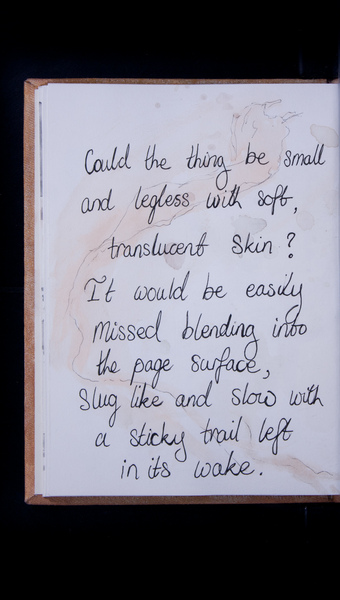 Could the thing be small
and legless with soft,
translucent skin?
It would be easily
missed blending into
the page surface,
slug like and slow with
a sticky trail left
in its wake.